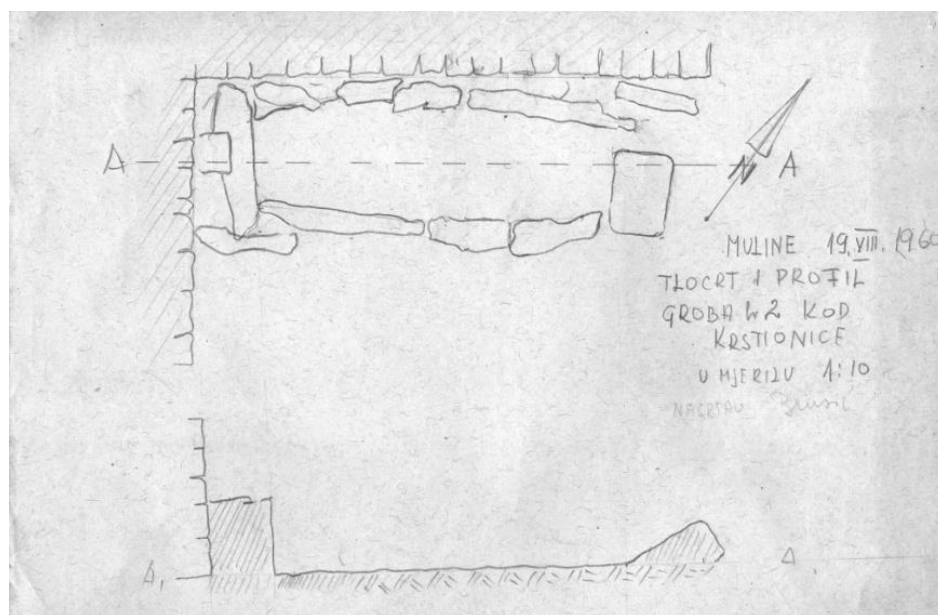 A
N A
MULINE 19. VIII. 1960
TLOCRT I PROFIL
GROBA 2 KOD
KRSTIONICE
U MJERILU 1:10
NACRTAO